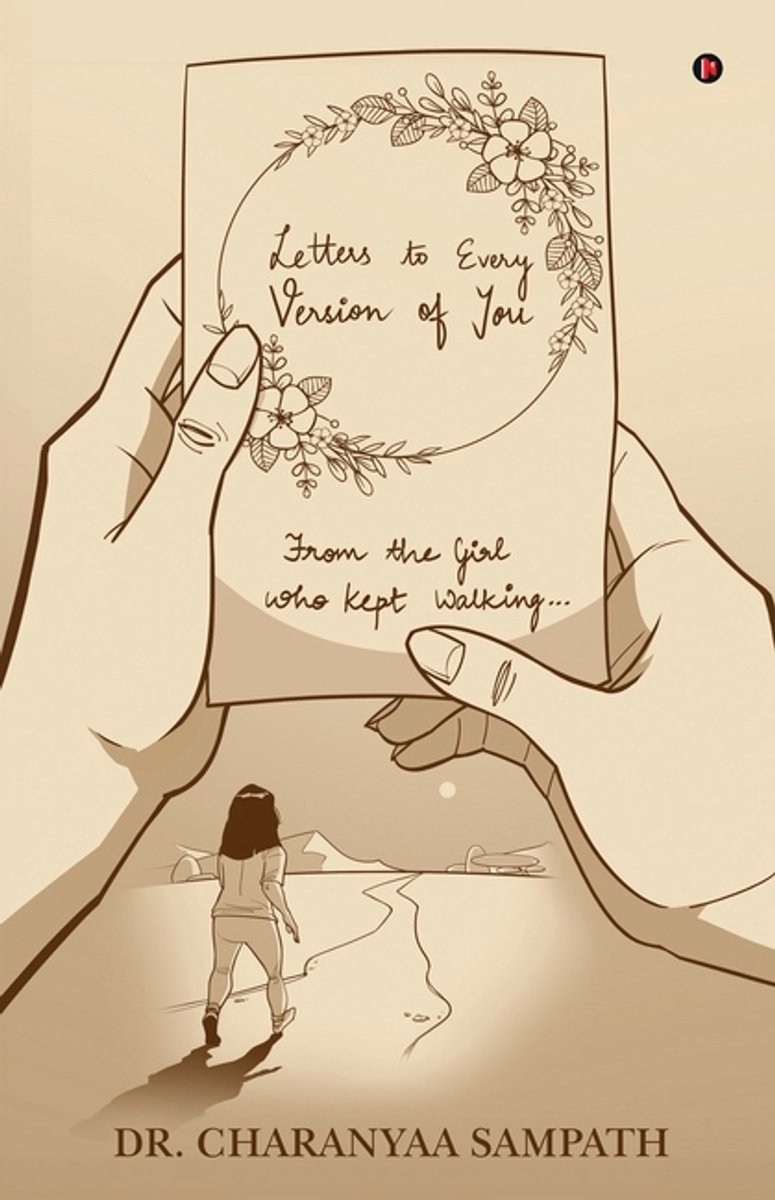 Letters to Every
Version of You
From the Girl
who kept walking...
DR. CHARANYAA SAMPATH